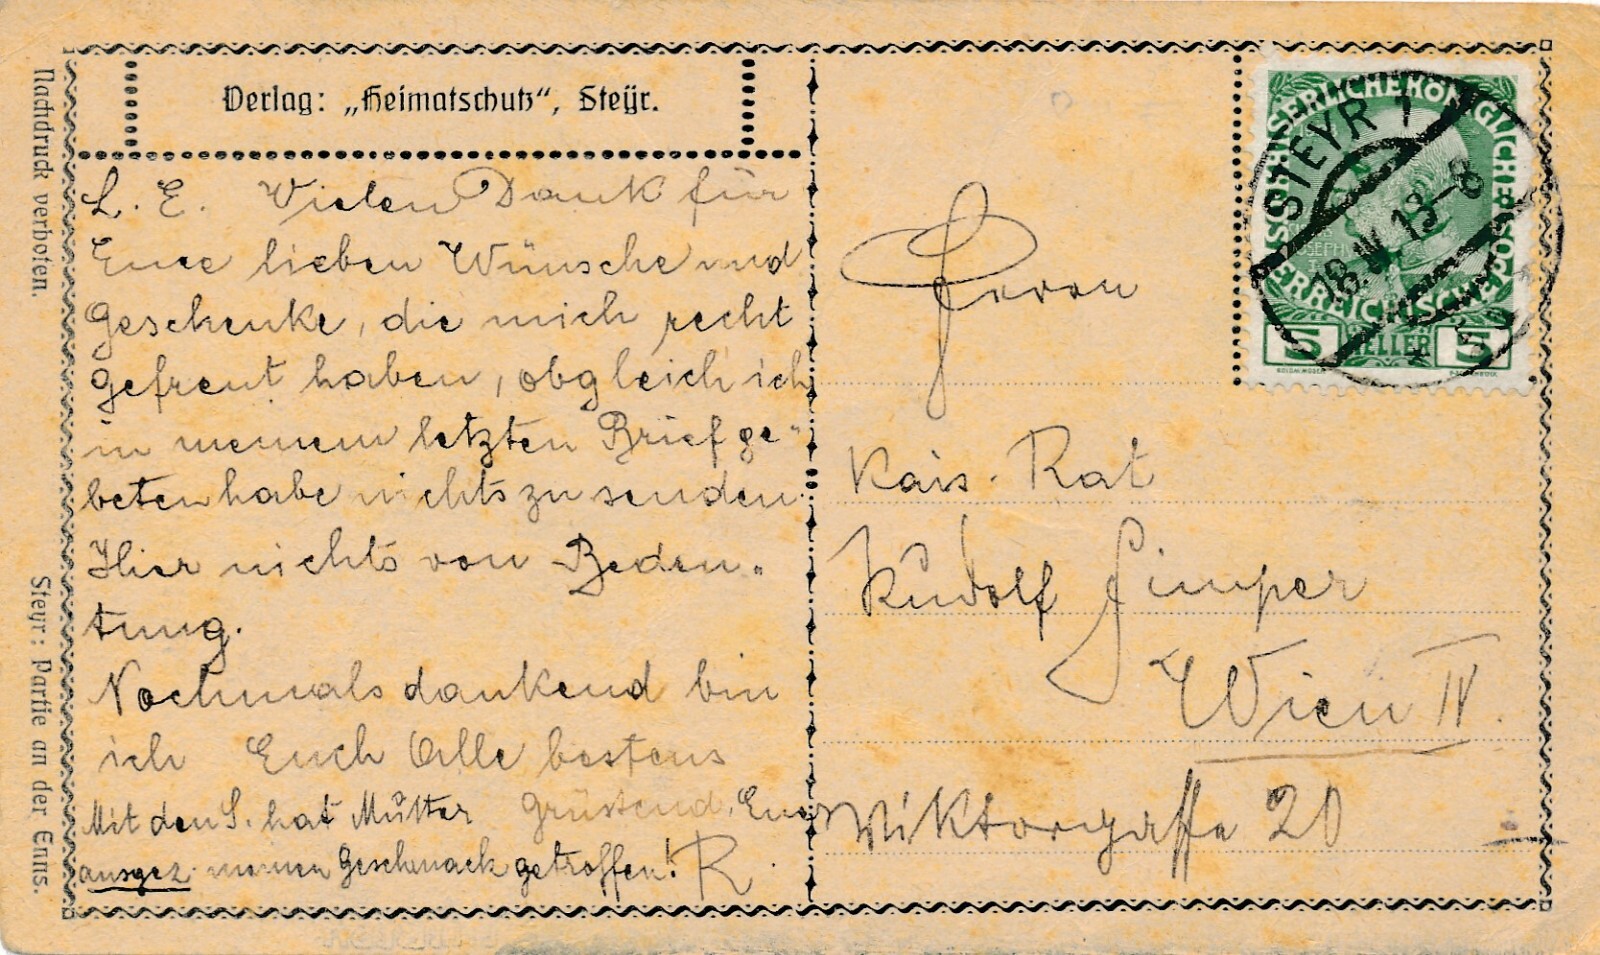 Verlag: „Heimatschutz“, Steÿr.
Nachdruck verboten.
Steyr: Partie an der Enns.
L. E. Vielen Dank für
Eure lieben Wünsche und
Geschenke, die mich recht
gefreut haben, obgleich ich
in meinem letzten Brief ge-
beten habe nichts zu senden.
Hier nichts von Bedeu-
tung.
Nochmals dankend bin
ich Euch Alle bestens
grüssend, Euer
R.
Mit den S. hat Mutter
ausgez. meinen Geschmack getroffen!
KAISERLICHE KÖNIGLICHE
ÖSTERREICHISCHE POST
5 HELLER 5
STEYR 1
Herrn
Kais. Rat
Rudolf Simper
Wien IV.
Wiktorgasse 20